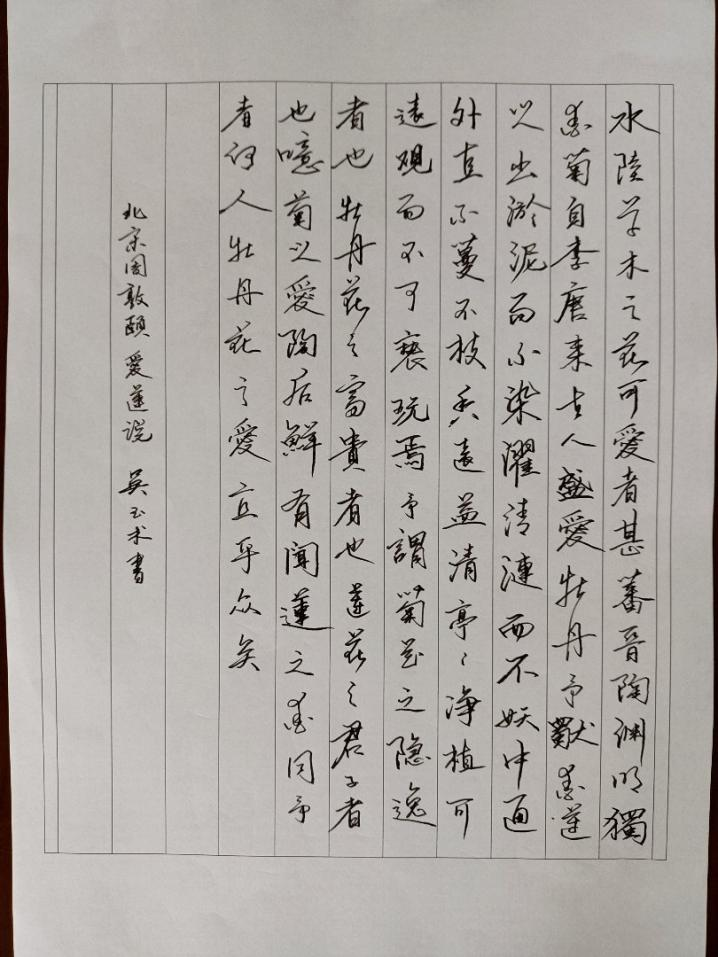 水陆草木之花可爱者甚蕃晋陶渊明獨
愛菊自李唐来世人盛愛牡丹予獨愛蓮
之出淤泥而不染濯清漣而不妖中通
外直不蔓不枝香遠益清亭〻净植可
遠观而不可亵玩焉予謂菊花之隐逸
者也牡丹花之富貴者也蓮花之君子者
也噫菊之愛陶后鮮有闻蓮之愛同予
者何人牡丹花之愛宜乎众矣
北宋周敦颐爱蓮说 吴玉术書